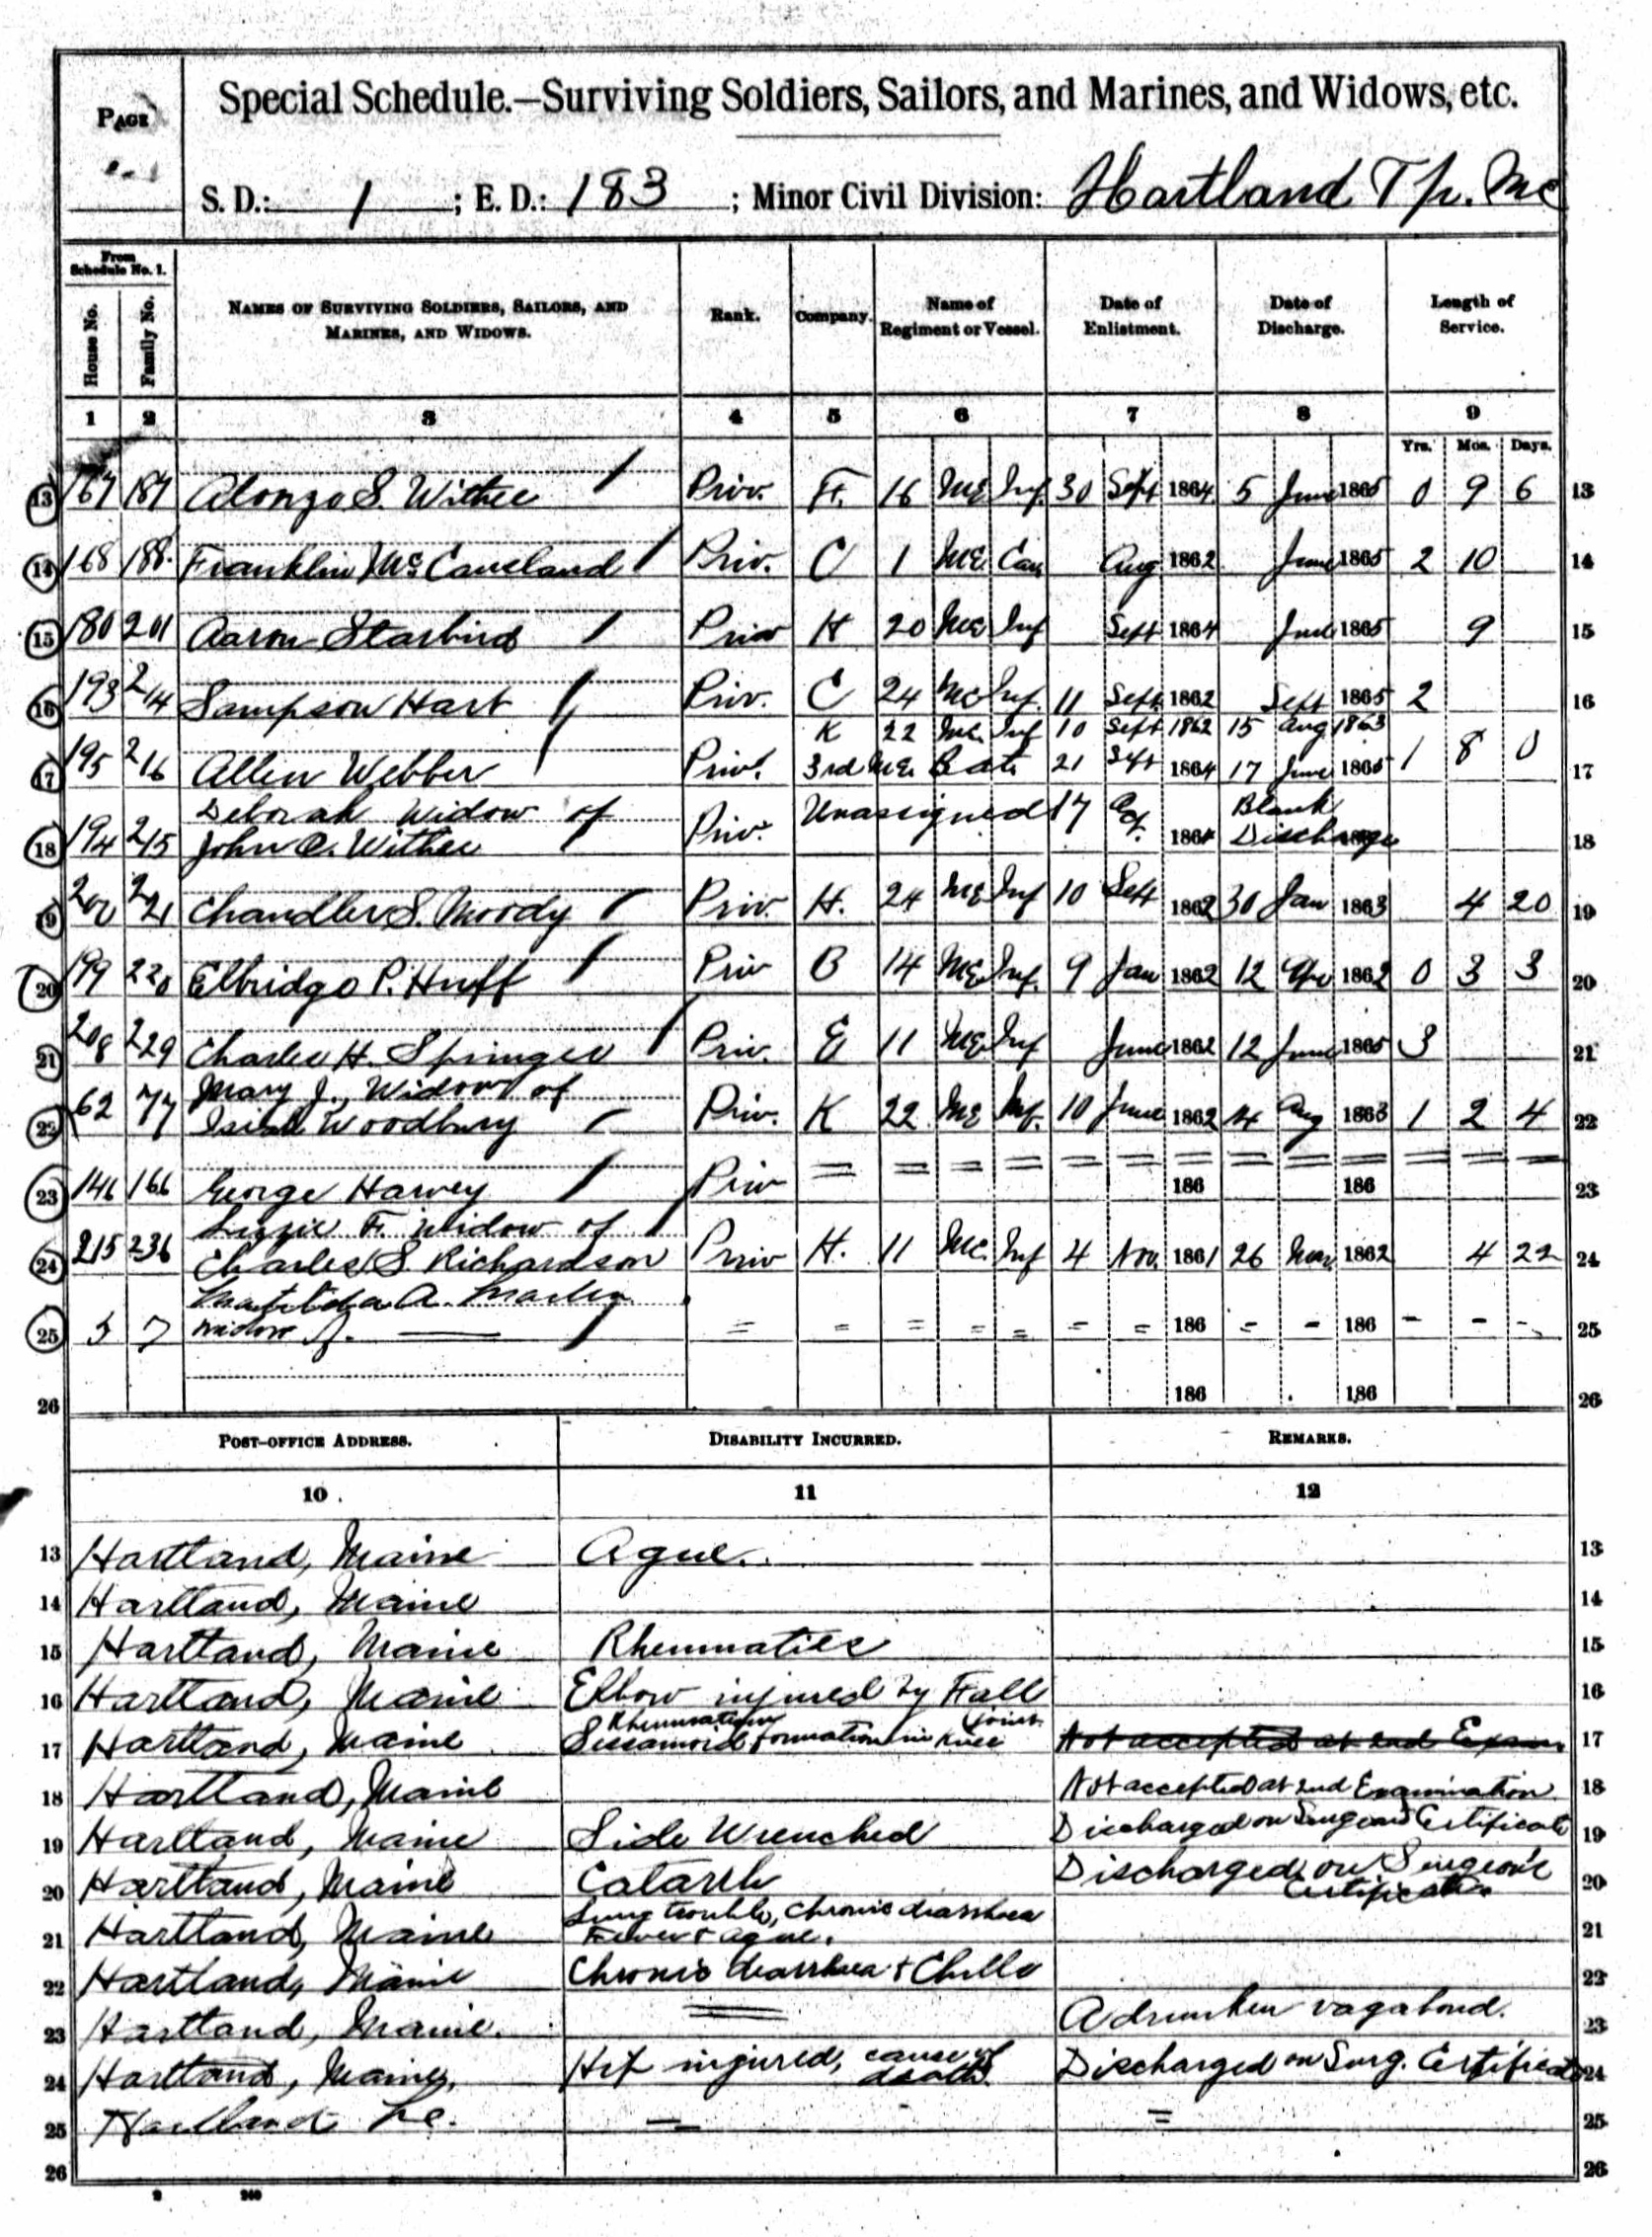 PAGE
Special Schedule.—Surviving Soldiers, Sailors, and Marines, and Widows, etc.
S. D.: 1 ; E. D.: 183 ; Minor Civil Division: Hartland Tp. Me
From Schedule No. 1.
House No. Family No. NAMES OF SURVIVING SOLDIERS, SAILORS, AND MARINES, AND WIDOWS. Rank. Company. Name of Regiment or Vessel. Date of Enlistment. Date of Discharge. Length of Service.
1 2 3 4 5 6 7 8 9
Yrs. Mos. Days.
13 167 187 Alonzo S. Withee Priv. F. 16 Me Inf. 30 Sept 1864 5 June 1865 0 9 6 13
14 168 188. Franklin Mc Causland Priv. C 1 Me Cav Aug 1862 June 1865 2 10 14
15 180 201 Aaron Starbird Priv H 20 Me Inf Sept 1864 June 1865 9 15
16 193 214 Sampson Hart Priv. C 24 Me Inf. 11 Sept. 1862 Sept 1865 2 16
K 22 Me. Inf 10 Sept 1862 15 Aug 1863
17 195 216 Allen Webber Priv. 3rd Me. Bat. 21 Sept 1864 17 June 1865 1 8 0 17
Deborah Widow of Unassigned 17 Blank
18 194 215 John C. Withee Priv. 1864 Discharge 18
19 202 221 Chandler S. Moody Priv. H. 24 Me Inf 10 Sept 1862 30 Jan 1863 4 20 19
20 199 220 Elbridge P. Huff Priv B 14 Me Inf. 9 Jan 1862 12 Apr 1862 0 3 3 20
21 208 229 Charles H. Springer Priv. E 11 Me Inf June 1862 12 June 1865 3 21
Mary J., Widow of
22 62 77 Isiah Woodbury Priv. K 22 Me Inf. 10 June 1862 14 Aug 1863 1 2 4 22
23 146 166 George Harvey Priv = = = = = = 186 = = 186 = = = 23
Lizzie F. Widow of
24 215 236 Charles S. Richardson Priv H. 11 Me. Inf 4 Nov. 1861 26 Mar 1862 4 22 24
Matilda A. Martin
25 5 7 widow of. — = = = = = = = 186 = - 186 - - - 25
26 186 186 26
POST-OFFICE ADDRESS. DISABILITY INCURRED. REMARKS.
10 11 12
13 Hartland, Maine Ague. 13
14 Hartland, Maine 14
15 Hartland, Maine Rheumatics 15
16 Hartland, Maine Elbow injured by Fall 16
Rheumatism joint
17 Hartland, Maine Sessamoid formation in Knee Not accepted at 2nd Exam 17
18 Hartland, Maine Not accepted at 2nd Examination 18
19 Hartland, Maine Side Wrenched Discharged on Surgeons Certificate 19
20 Hartland, Maine Catarrh Discharged on Surgeon's Certificate. 20
Lung trouble, Chronic diarrhoea
21 Hartland, Maine Fever & ague. 21
22 Hartland, Maine Chronic diarrhea & Chills 22
23 Hartland, Maine. = A drunken vagabond. 23
24 Hartland, Maine, Hip injured, cause of death. Discharged on Surg. Certificate 24
25 Hartland Me. — = 25
26 26
2 240